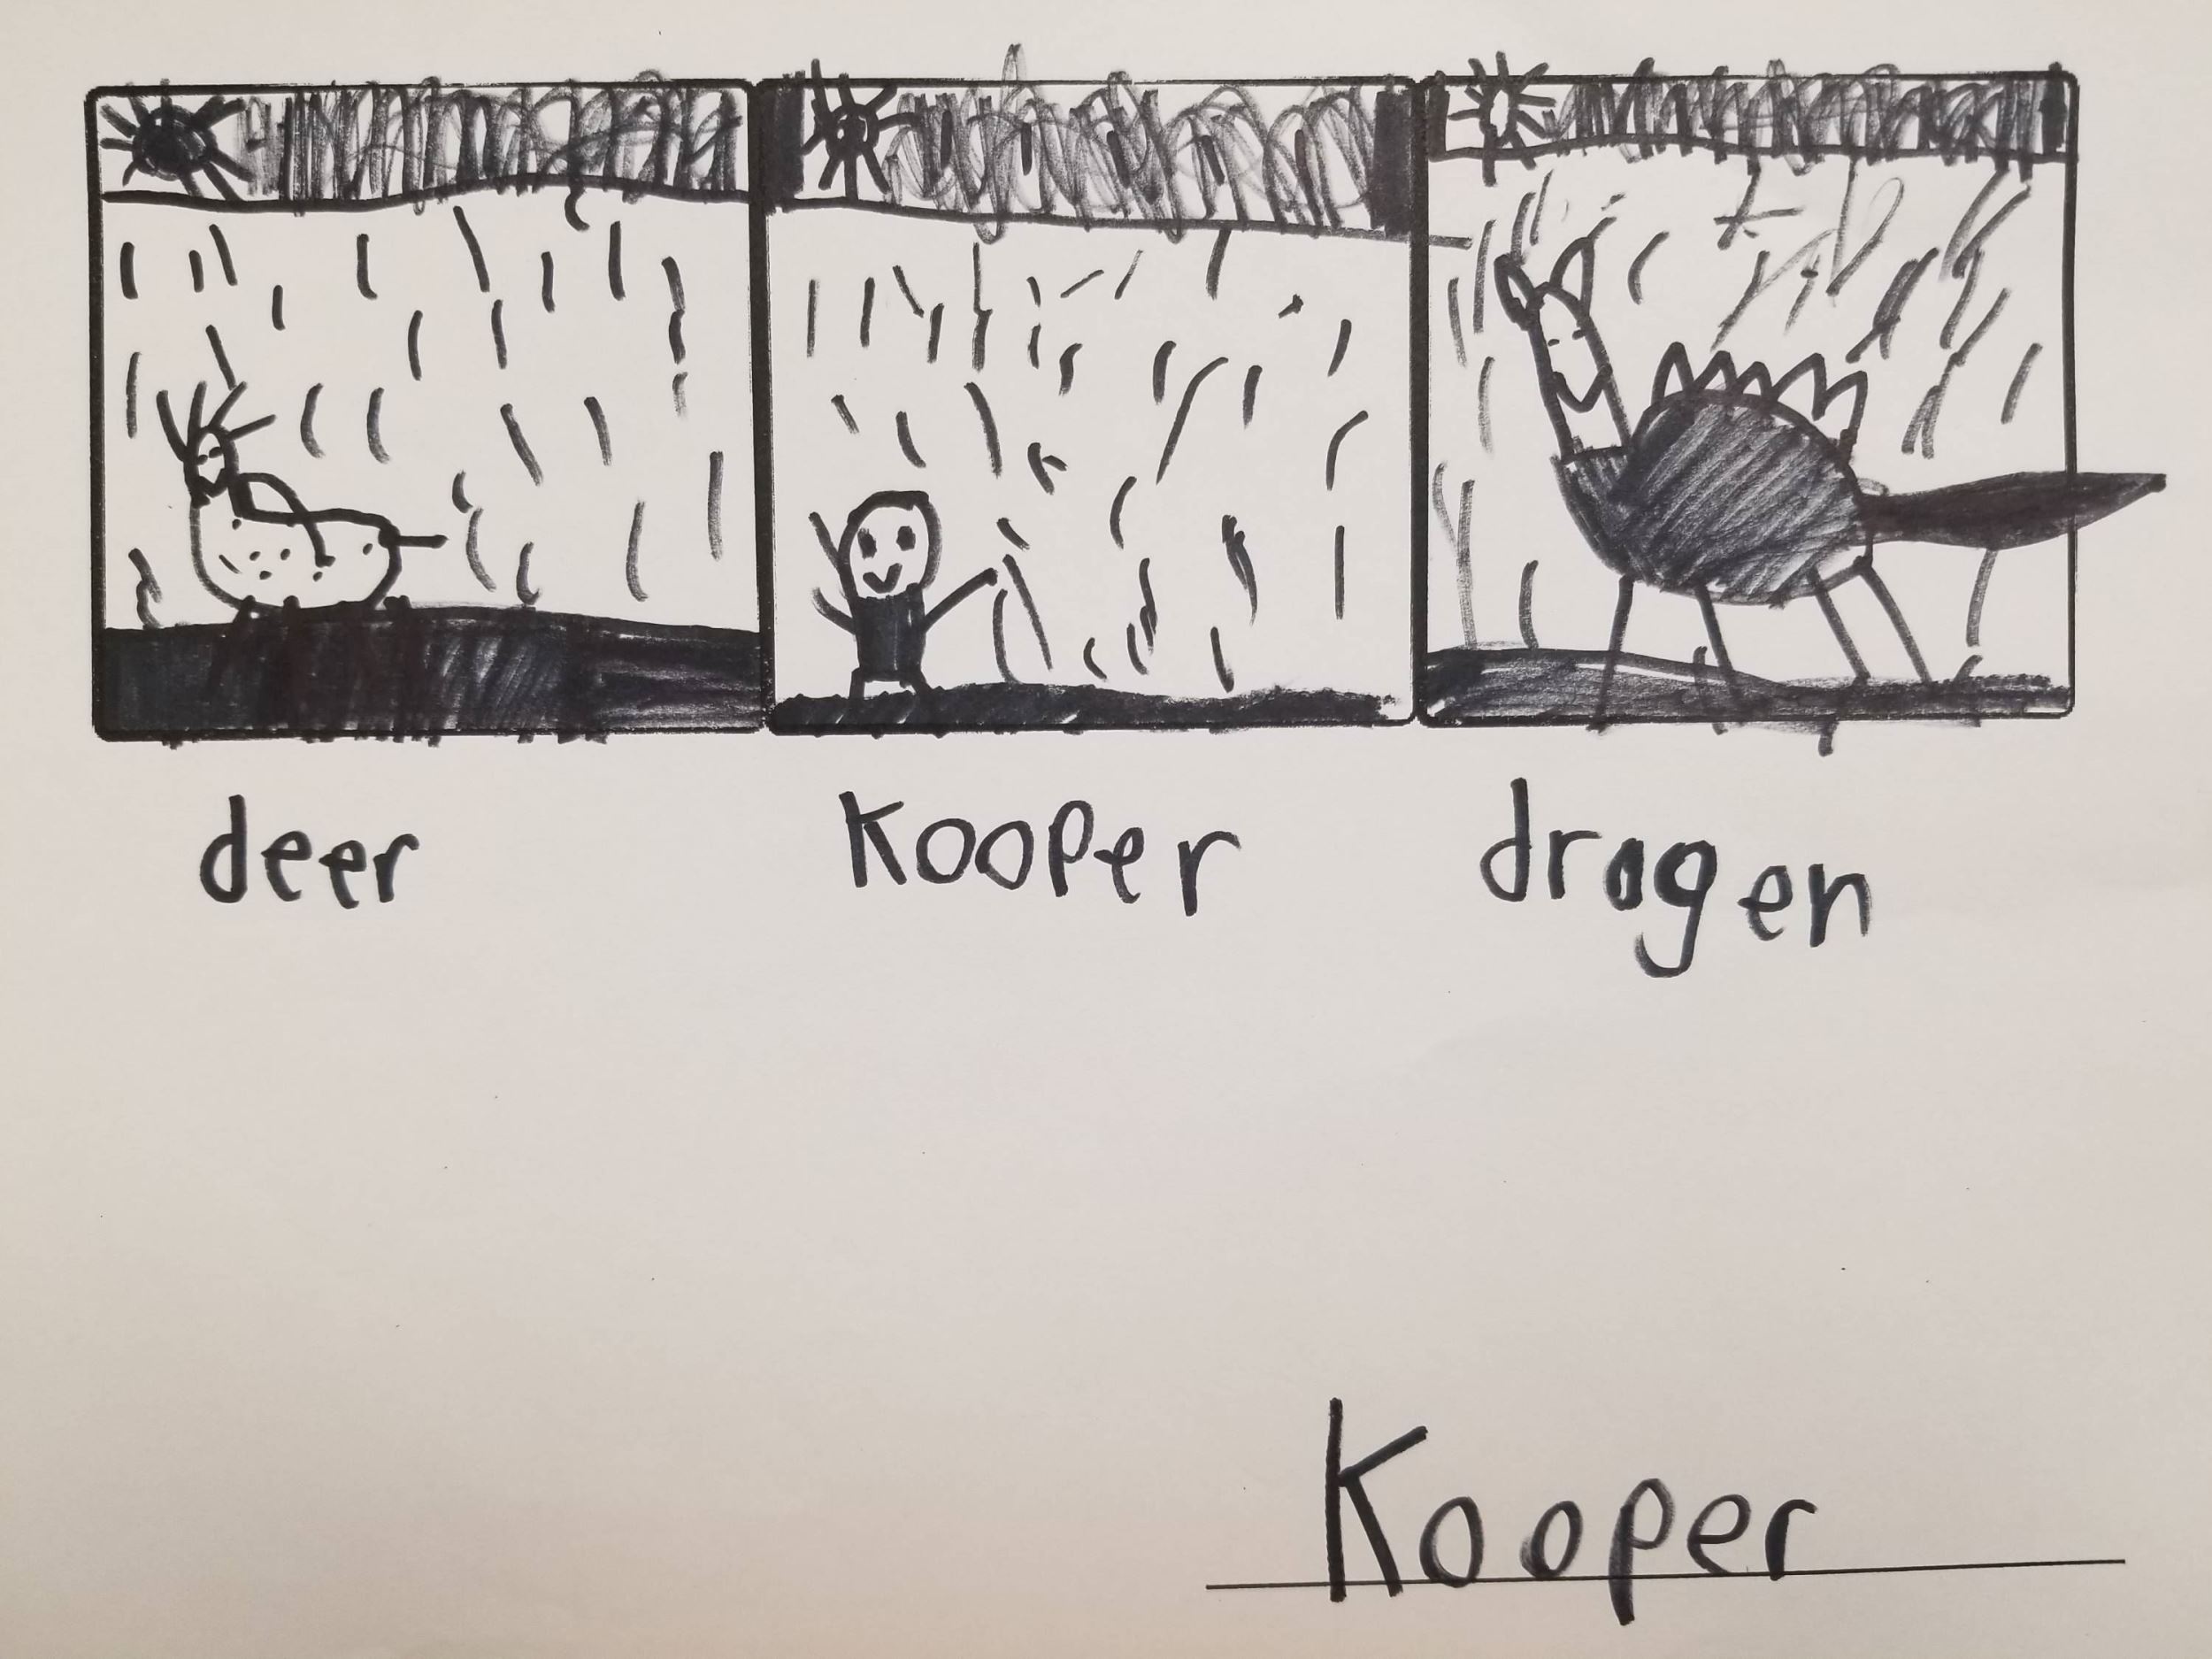 deer
Kooper
dragen
Kooper